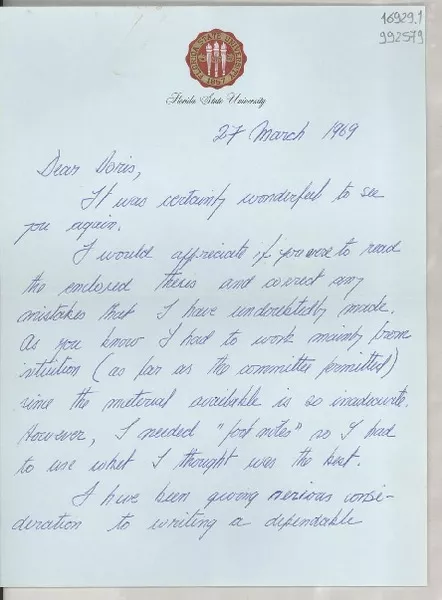 16929.1
992579
FLORIDA STATE UNIVERSITY
1857
Florida State University
27 March 1969
Dear Doris,
It was certainly wonderful to see
you again.
I would appreciate if you were to read
the enclosed thesis and correct any
mistakes that I have undoubtedly made.
As you know I had to work mainly from
intuition (as far as the committee permitted)
since the material available is so inadequate.
However, I needed "foot notes" so I had
to use what I thought was the best.
I have been giving serious consi-
deration to writing a dependable